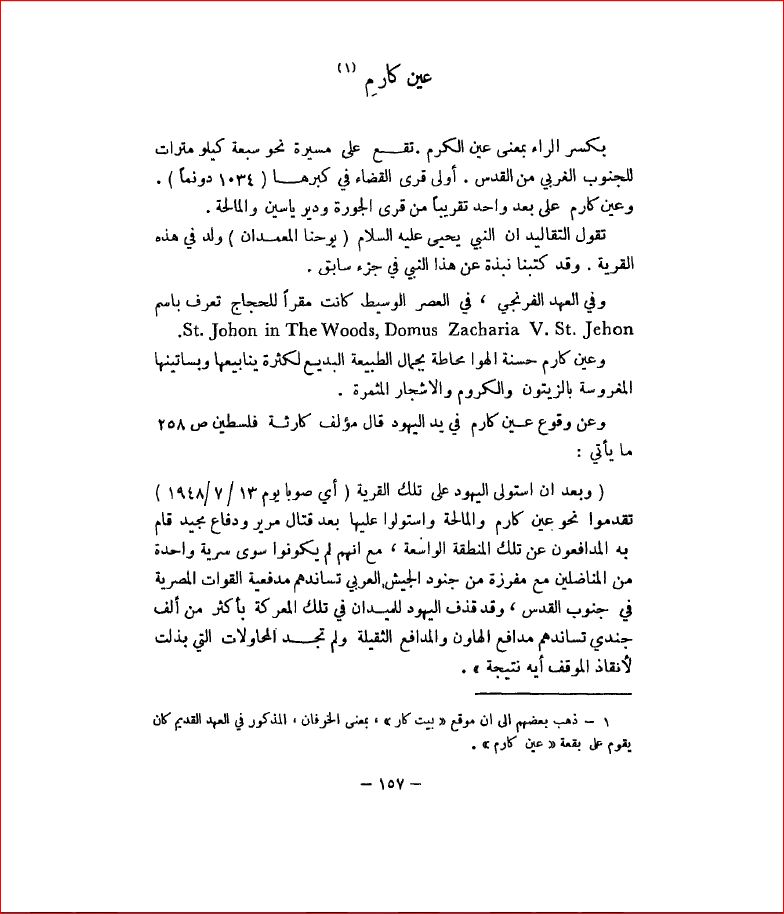 عين كارِم (١)
بكسر الراء بمعنى عين الكرم . تقـــع على مسيرة نحو سبعة كيلو مترات
للجنوب الغربي من القدس . أولى قرى القضاء في كبرهـــا ( ١٠٣٤ دونماً ) .
وعين كارم على بعد واحد تقريباً من قرى الجورة ودير ياسين والمالحة .
تقول التقاليد ان النبي يحيى عليه السلام ( يوحنا المعمـدان ) ولد في هذه
القرية . وقد كتبنا نبذة عن هذا النبي في جزء سابق .
وفي العهد الفرنجي ، في العصر الوسيط كانت مقراً للحجاج تعرف باسم
St. Johon in The Woods, Domus Zacharia V. St. Jehon.
وعين كارم حسنة الهوا محاطة بجمال الطبيعة البديع لكثرة ينابيعها وبساتينها
المغروسة بالزيتون والكروم والاشجار المثمرة .
وعن وقوع عــين كارم في يد اليهود قال مؤلف كارثـة فلسطين ص ٢٥٨
ما يأتي :
( وبعد ان استولى اليهود على تلك القرية ( أي صوبا يوم ١٣ / ٧ / ١٩٤٨ )
تقدموا نحو عين كارم والمالحة واستولوا عليها بعد قتال مرير ودفاع مجيد قام
به المدافعون عن تلك المنطقة الواسعة ، مع انهم لم يكونوا سوى سرية واحدة
من المناضلين مع مفرزة من جنود الجيش العربي تساندهم مدفعية القوات المصرية
في جنوب القدس ، وقد قذف اليهود للميـدان في تلك المعركة بأكثر من ألف
جندي تساندهم مدافع الهاون والمدافع الثقيلة ولم تجـــد المحاولات التي بذلت
لأنقاذ الموقف أيه نتيجة » .
١ – ذهب بعضهم الى ان موقع « بيت كار » ، بمعنى الخرفان ، المذكور في العهد القديم كان
يقوم على بقعة « عين كارم » .
– ١٥٧ –